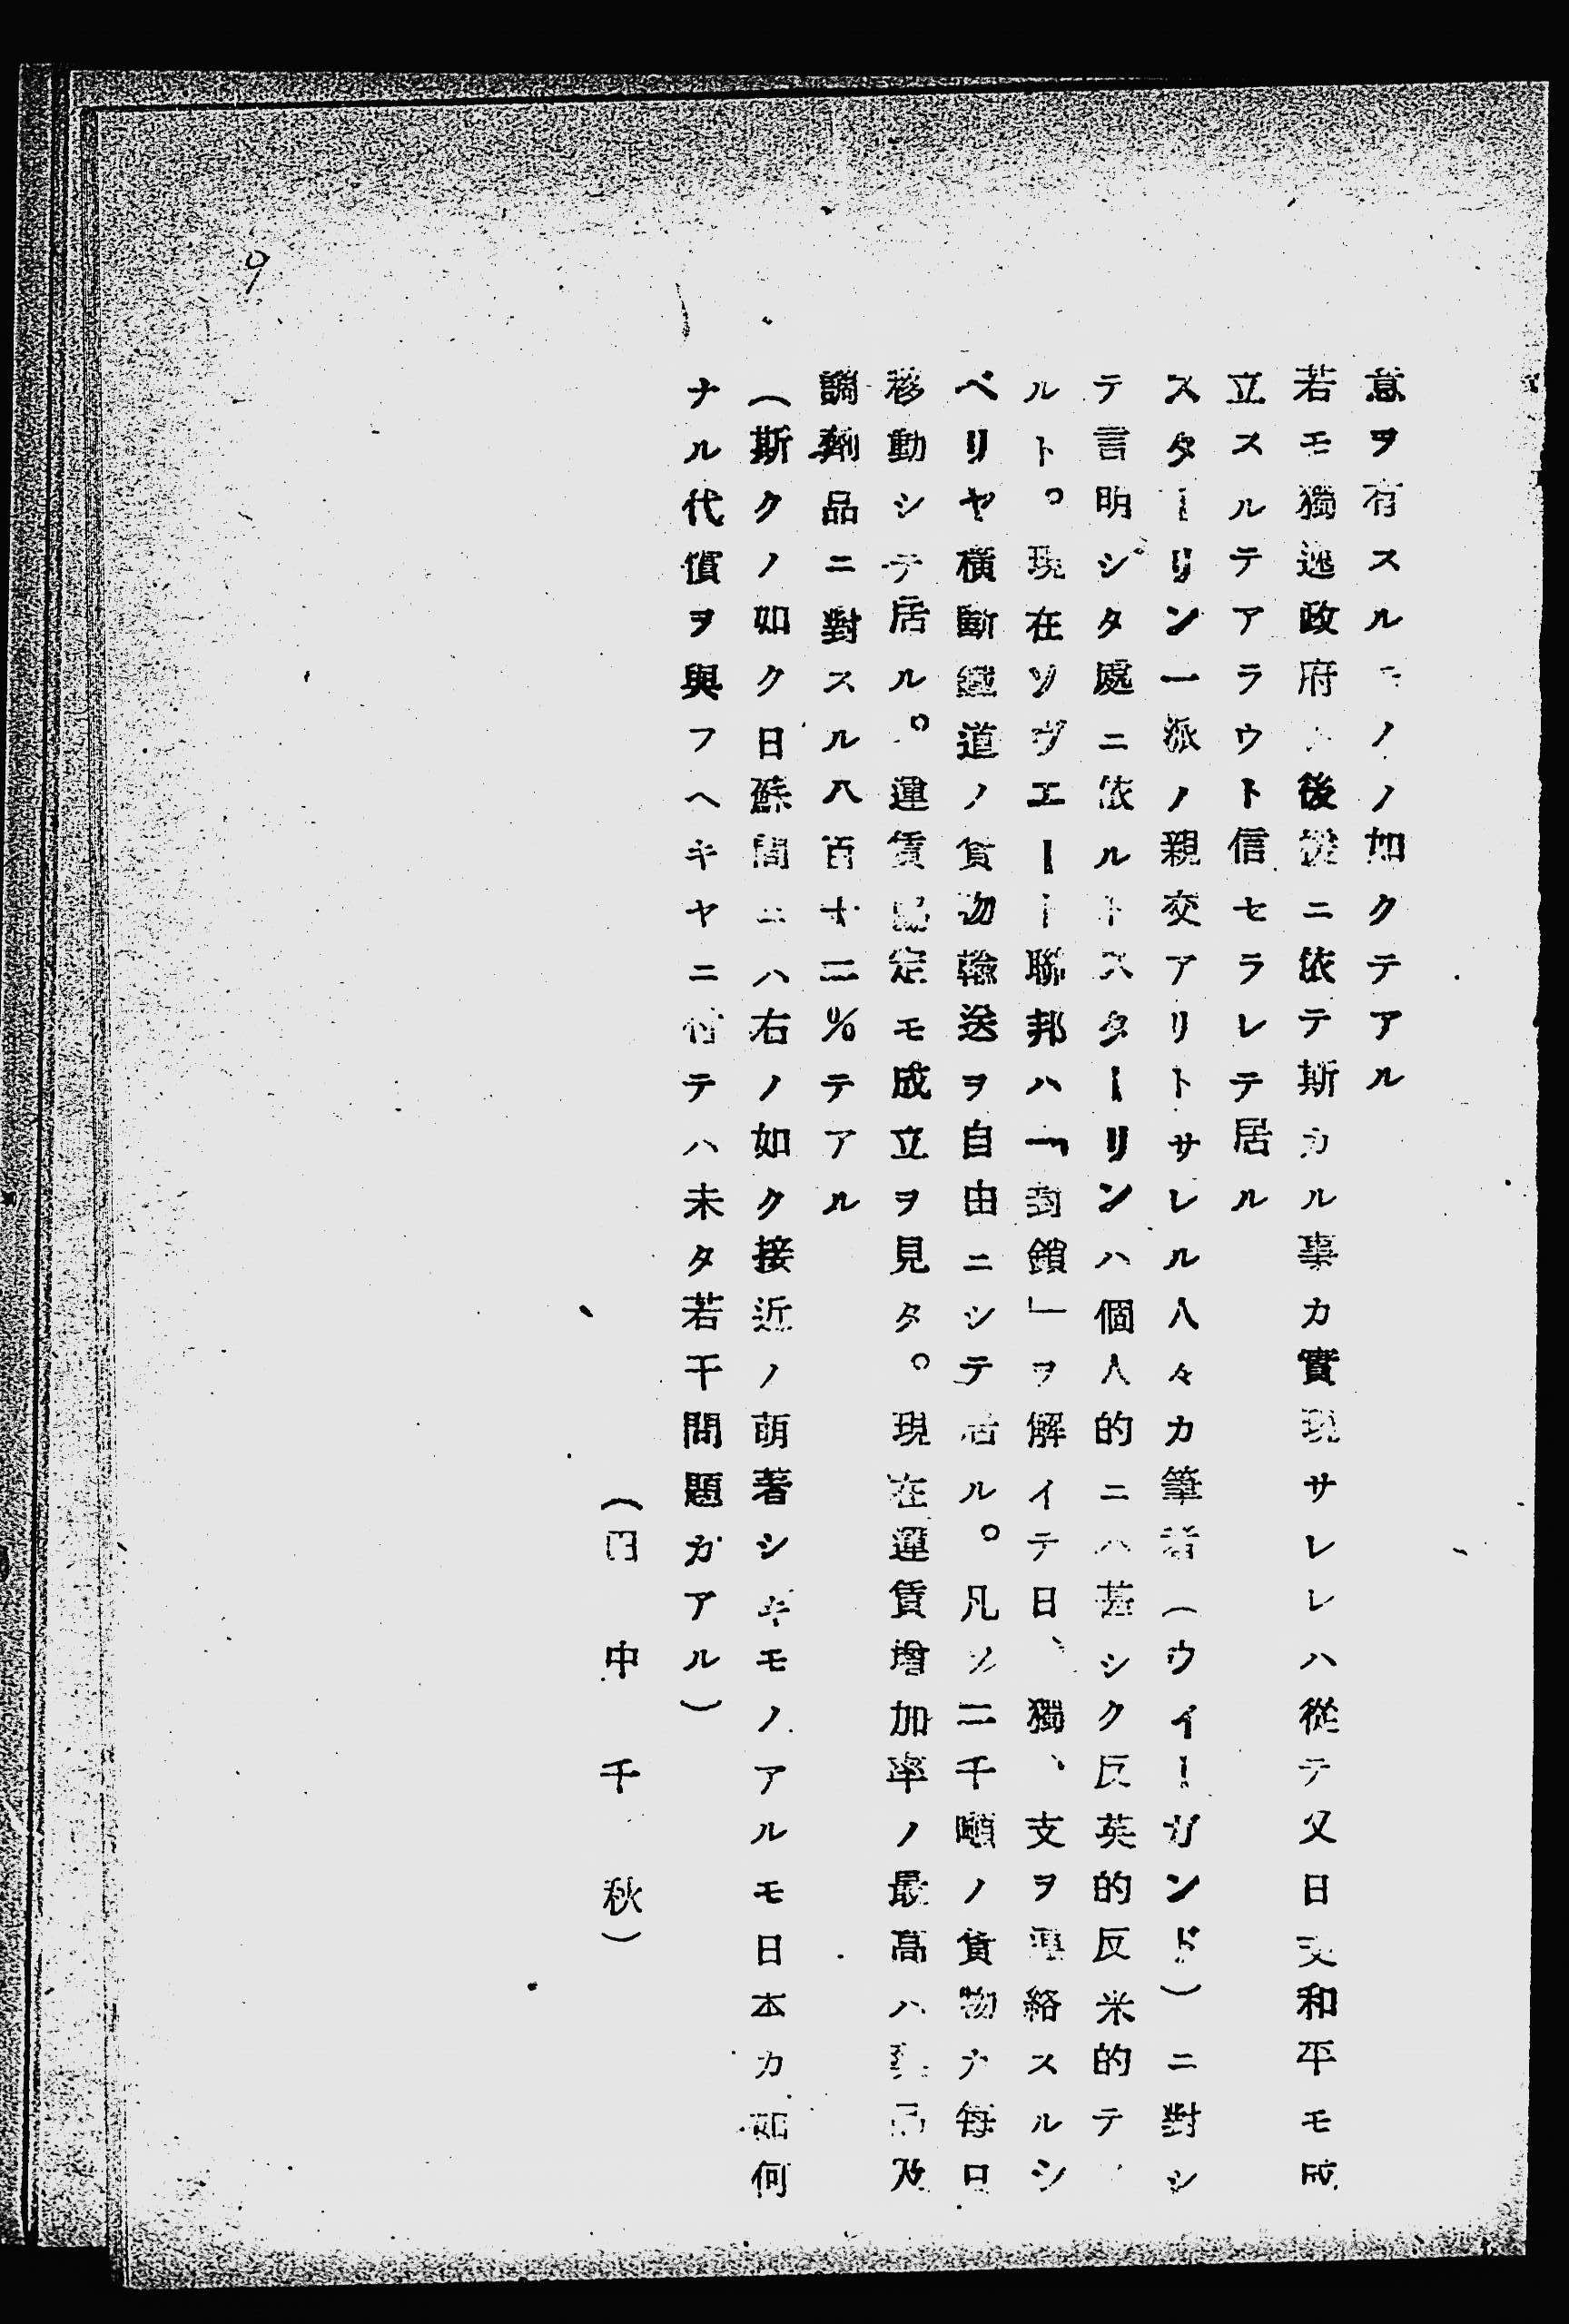 意ヲ有スルモノノ如クテアル
若モ獨逸政府ノ後援ニ依テ斯カル事カ實現サレレハ從テ又日支和平モ成
立スルテアラウト信セラレテ居ル
スターリン一派ノ親交アリトサレル人々カ筆者(ウイーガンド)ニ對シ
テ言明シタ處ニ依ルトスターリンハ個人的ニハ甚シク反英的反米的テ
ルト。現在ソヴエート聯邦ハ「封鎖」ヲ解イテ日、獨、支ヲ連絡スルシ
ベリヤ横斷鐵道ノ貨物輸送ヲ自由ニシテ居ル。凡ソ二千噸ノ貨物カ毎日
移動シテ居ル。運賃協定モ成立ヲ見タ。現在運賃增加率ノ最高ハ品及
調劑品ニ對スル八百十二%テアル
(斯クノ如ク日蘇間ニハ右ノ如ク接近ノ萌著シキモノアルモ日本カ如何
ナル代償ヲ與フヘキヤニ付テハ未タ若干問題カアル)
(田中千秋)
9